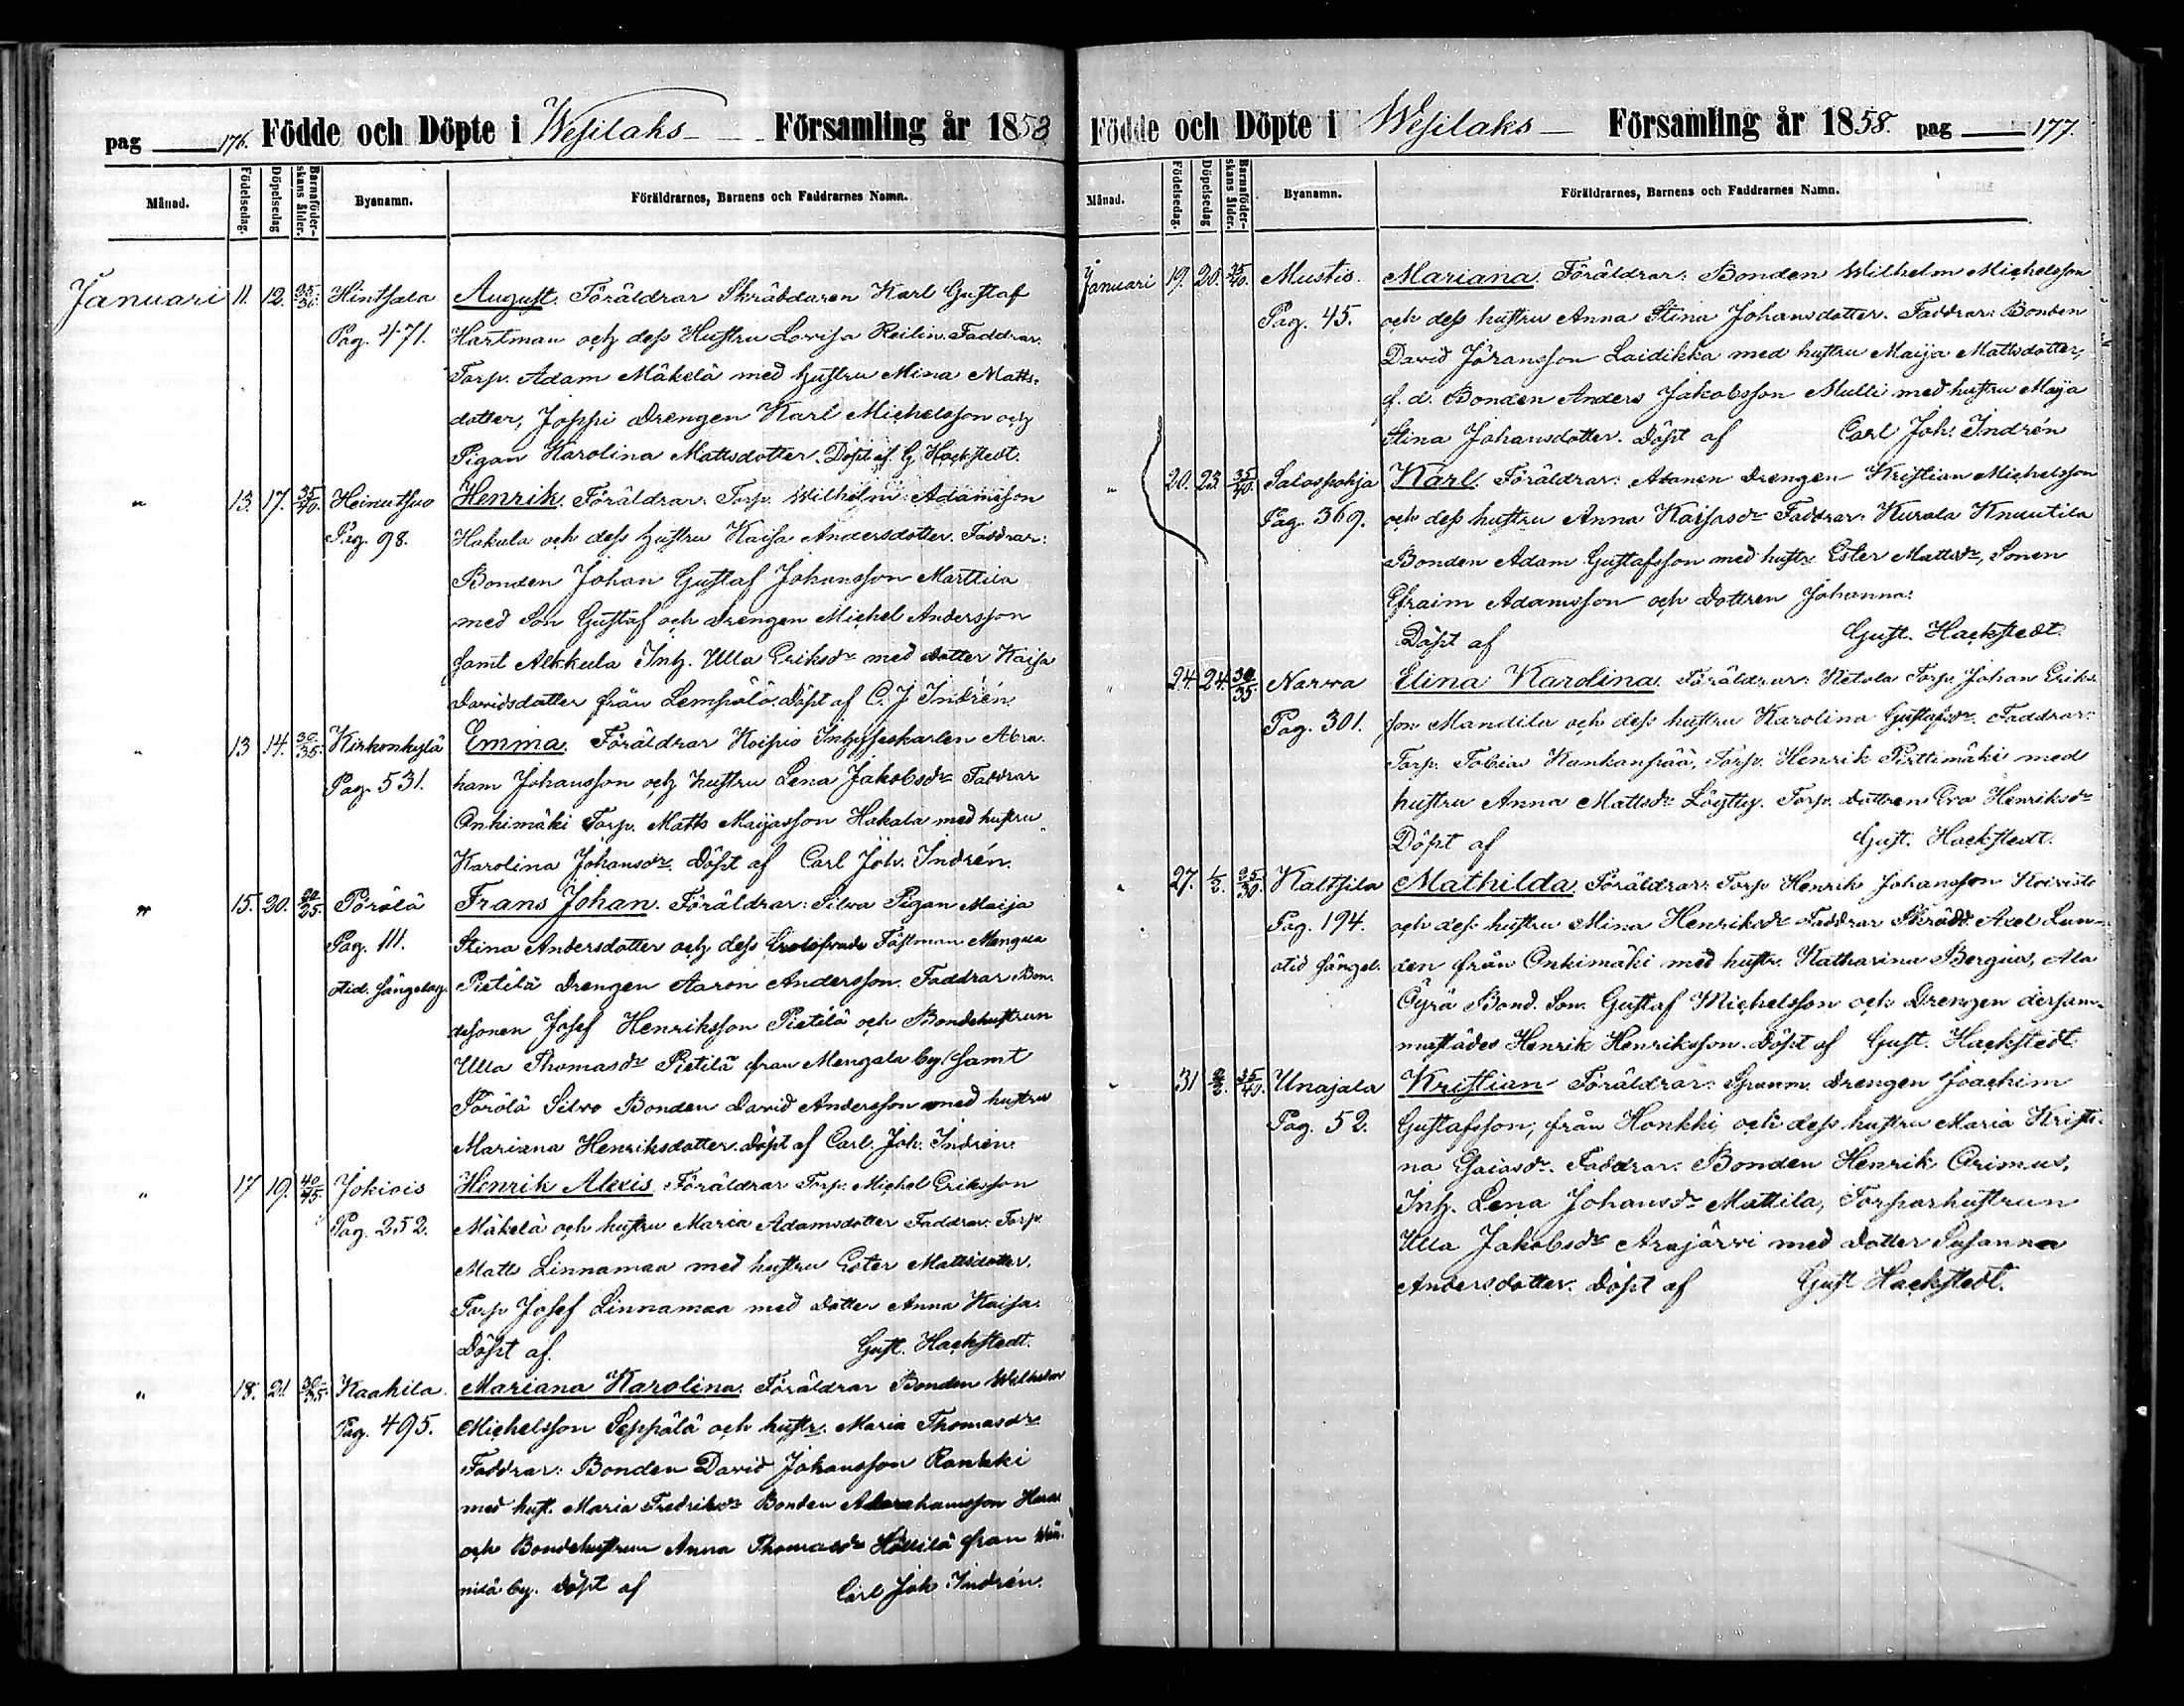 pag 176. Födde och Döpte i Wesilaks Församling år 1858
Månad. Födelsedag. Döpelsedag Barnaföderskans ålder. Byanamn. Föräldrarnes, Barnens och Faddrarnes Namn.
Januari 11. 12. 25/30. Hintsala August. Föräldrar Skräddaren Karl Gustaf
Pag. 471. Hartman och dess Hustru Lovisa Reilin. Faddrar.
Torp. Adam Mäkelä med hustru Mina Matts-
dotter, Joppi Drengen Karl Michelsson och
Pigan Karolina Mattsdotter. Döpt af G Hackstedt.
" 13. 17. 35/40. Heinutsuo Henrik. Föräldrar. Torp. Wilhelm Adamsson
Pag. 98. Hakula och dess hustru Kaisa Andersdotter. Faddrar:
Bonden Johan Gustaf Johansson Marttila
med Son Gustaf och Drengen Michel Andersson
samt Alkkula Inh. Ulla Eriksdr med dotter Kaisa
Davidsdotter från Lempälä. Döpt af C. J Indrén.
" 13 14. 30/35. Kirkonkylä Emma. Föräldrar Koipio Inhyseskarlen Abra-
Pag. 531. ham Johansson och hustru Lena Jakobsdr Faddrar
Onkimäki Torp. Matts Maijasson Hakala med hustru
Karolina Johansdr. Döpt af Carl Joh. Indrén.
" 15. 20. 20/25. Pörölä Frans Johan. Föräldrar: Silvo Pigan Maija
Pag. 111. Stina Andersdotter och dess trolofvade Fästman Mengala
otid. sängelag. Pietilä Drengen Aaron Andersson. Faddrar Bon-
desonen Josef Henriksson Pietilä och Bondehustrun
Ulla Thomasdr Pietilä fran Mengala by samt
Pörölä Silvo Bonden David Andersson med hustru
Mariana Henriksdotter. döpt af Carl. Joh. Indrén.
" 17 19. 40/45 Jokiois Henrik Alexis. Föräldrar Torp. Michel Eriksson
Pag. 252. Mäkelä och hustru Maria Adamsdotter Faddrar. Torp.
Matts Linnamaa med hustru Ester Mattsdotter.
Torp Josef Linnamaa med dotter Anna Kaisa.
Döpt af. Gust. Hackstedt.
" 18. 21 30/35. Kaakila. Mariana Karolina. Föräldrar Bonden Wilhelm
Pag. 495. Michelsson Seppälä och hustr. Maria Thomasdr
Faddrar: Bonden David Johansson Rankki
med hust. Maria Fredriksdr Bonden Abrahamsson
och Bondehustrun Anna Thomasdr Hollilä fran Wää-
nilä by. döpt af Carl Joh Indrén.
Födde och Döpte i Wesilaks Församling år 1858. pag 177.
Månad. Födelsedag. Döpelsedag Barnaföderskans ålder. Byanamn. Föräldrarnes, Barnens och Faddrarnes Namn.
Januari 19. 20. 35/40. Mustis. Mariana. Föräldrar: Bonden Wilhelm Michelsson
Pag. 45. och dess hustru Anna Stina Johansdotter. Faddrar: Bonden
David Jöransson Laidikka med hustru Maija Mattsdotter,
f. d. Bonden Anders Jakobsson Mulli med hustru Maija
Stina Johansdotter. Döpt af Carl Joh. Indrén
" 20. 23. 35/40. Salospohja Karl. Föräldrar: Atanen drengen Kristian Michelsson
Pag. 369. och dess hustru Anna Kaisasdr Faddrar: Kurala Knuutila
Bonden Adam Gustafsson med hustr Ester Mattsdr, Sonen
Efraim Adamsson och Dottren Johanna:
Döpt af Gust. Hackstedt.
" 24. 24. 30/35 Narva Elina Karolina. Föräldrar: Ketola Torp. Johan Eriks-
Pag. 301. son Mandila och dess hustru Karolina Gustafsdr. Faddrar:
Torp. Tobias Kankanpää, Torp. Henrik Pirttimäki med
hustru Anna Mattsdr Löytty. Torp. dottren Eva Henriksdr
Döpt af Gust. Hackstedt.
" 27. 1/3. 25/30. Kaltsila Mathilda. Föräldrar: Torp Henrik Johansson Koivisto
Pag. 194. och dess hustru Mina Henriksdr Faddrar Skrädd. Axel Lun-
otid sängel. den från Onkimäki med hustr. Katharina Bergius, Ala
Öyrä Bond. Son. Gustaf Michelsson och Drengen dersam-
mastädes Henrik Henriksson. döpt af Gust. Hackstedt
" 31 2/3. 35/40. Unajala Kristian Föräldrar: Spanm. drengen Joachim
Pag. 52. Gustafsson, från Honkki och dess hustru Maria Kristi-
na Esaiasdr. Faddrar: Bonden Henrik Orimus,
Inh. Lena Johansdr Mattila, Torparhustrun
Ulla Jakobsdr Arajärvi med dotter Susanna
Andersdotter. Döpt af Gust Hackstedt.